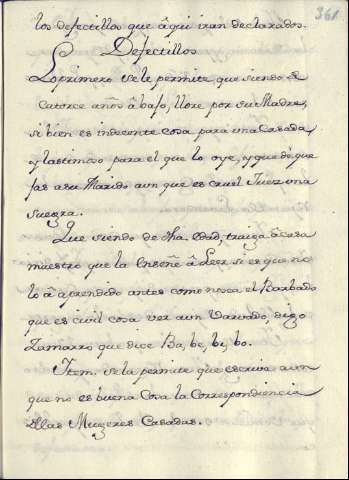 361
los defectillos que âqui iran declarados.
Defectillos
Lo primero se le permite que siendo de
Catorce años âbajo, llore por su Madre,
si bien es indecente cosa para una Casada,
y lastimosa para el que lo oye, y que dé que
jas a su Marido aun que es cruel Juez una
suegra.
Que siendo de dha edad, traiga âcasa
maestro que la Enseñe â Leer si es que no
lo â aprendido antes como no sea el Barbado
que es civil cosa ver aun Varvado, digo
Zamarro que dice Ba, be, bi, bo.
Ytem. se la permite que escriva aun
que no es buena Cosa la Correspondiencia
dllas Mugeres Casadas.